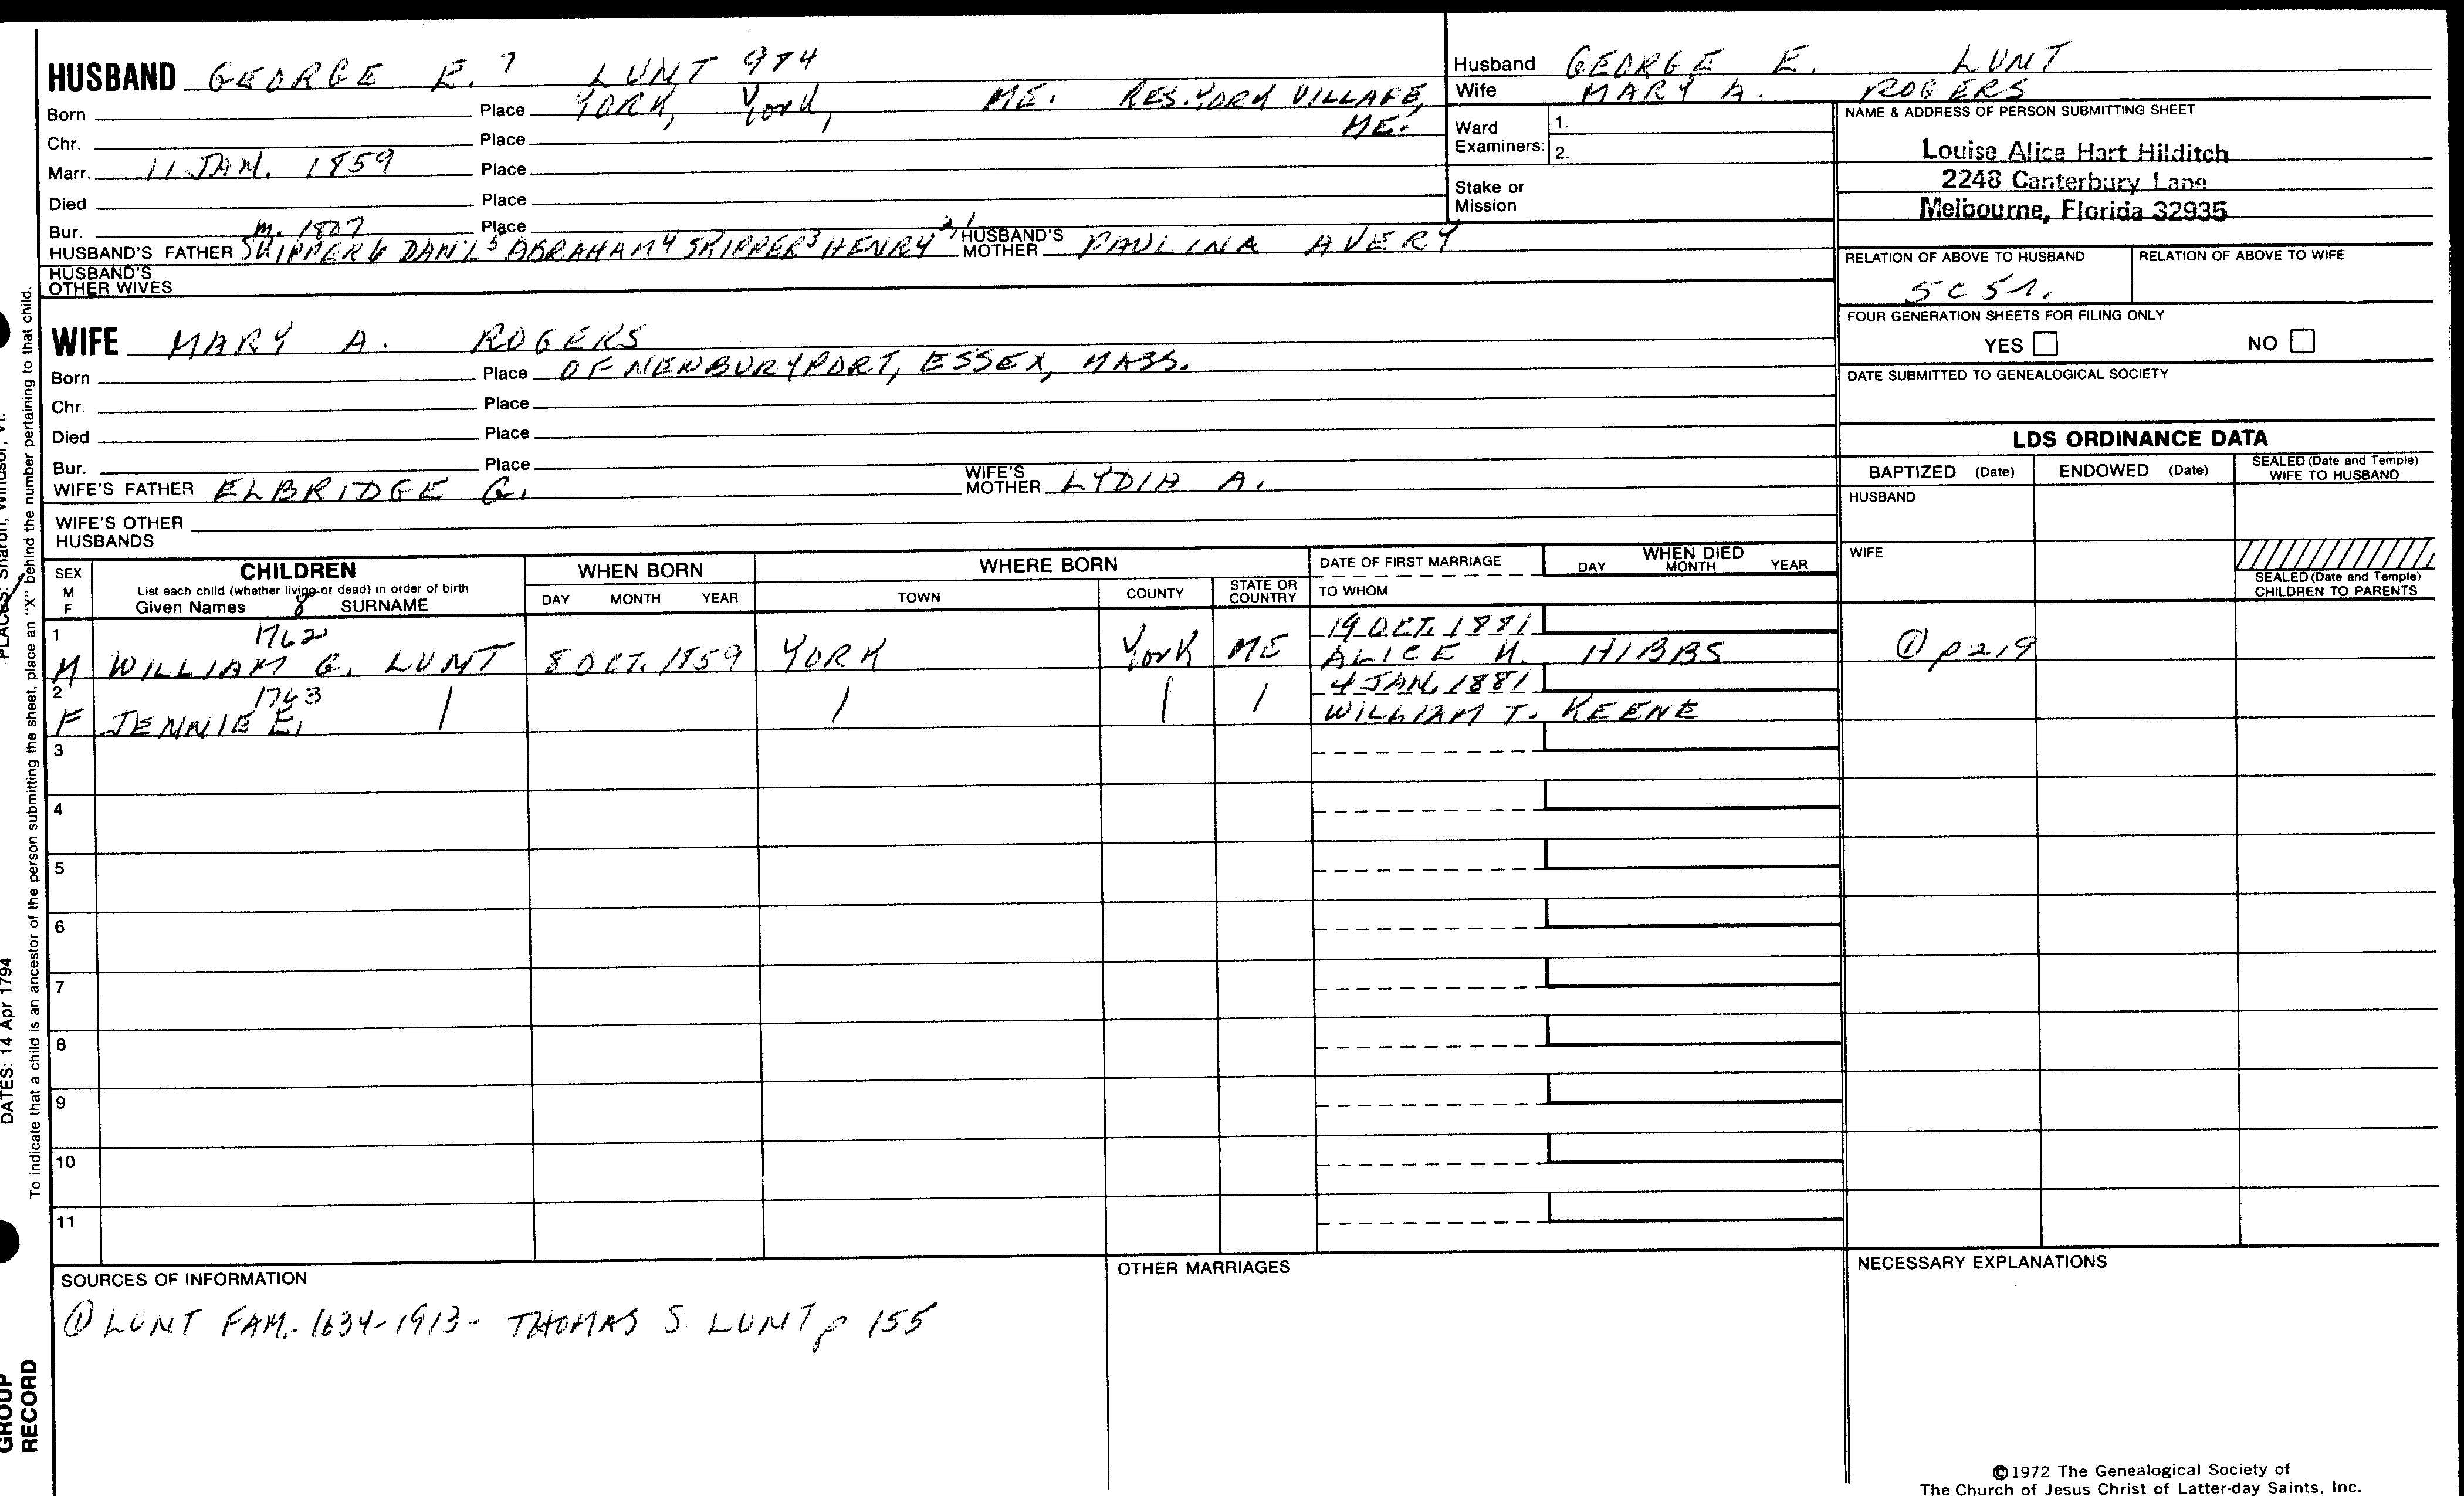 HUSBAND GEORGE E. 7 LUNT 974
Born Place YORK, York, ME. RES. YORK VILLAGE, ME.
Chr. Place
Marr. 11 JAN. 1859 Place
Died Place
Bur. Place
m. 1827
HUSBAND'S FATHER SKIPPER 6 DAN'L 5 ABRAHAM 4 SKIPPER 3 HENRY 2, 1 HUSBAND'S MOTHER PAULINA AVERY
HUSBAND'S OTHER WIVES
WIFE MARY A. ROGERS
Born Place OF NEWBURYPORT, ESSEX, MASS.
Chr. Place
Died Place
Bur. Place
WIFE'S FATHER ELBRIDGE G. WIFE'S MOTHER LYDIA A.
WIFE'S OTHER HUSBANDS
Husband GEORGE E. LUNT
Wife MARY A. ROGERS
Ward Examiners: 1. 2.
Stake or Mission
NAME & ADDRESS OF PERSON SUBMITTING SHEET
Louise Alice Hart Hilditch
2248 Canterbury Lane
Melbourne, Florida 32935
RELATION OF ABOVE TO HUSBAND RELATION OF ABOVE TO WIFE
5C 5
FOUR GENERATION SHEETS FOR FILING ONLY
YES NO
DATE SUBMITTED TO GENEALOGICAL SOCIETY
LDS ORDINANCE DATA
BAPTIZED (Date) ENDOWED (Date) SEALED (Date and Temple) WIFE TO HUSBAND
HUSBAND
WIFE
SEALED (Date and Temple) CHILDREN TO PARENTS
SEX M F
CHILDREN
List each child (whether living or dead) in order of birth
Given Names 8 SURNAME
WHEN BORN
DAY MONTH YEAR
WHERE BORN
TOWN COUNTY STATE OR COUNTRY
DATE OF FIRST MARRIAGE
TO WHOM
WHEN DIED
DAY MONTH YEAR
1 1762 19 OCT. 1881
M WILLIAM G. LUNT 8 OCT. 1859 YORK York ME ALICE M. HIBBS ① p 219
2 1763 4 JAN. 1881
F JENNIE E. WILLIAM T. KEENE
3
4
5
6
7
8
9
10
11
SOURCES OF INFORMATION
① LUNT FAM. 1634-1913- THOMAS S. LUNT p 155
OTHER MARRIAGES
NECESSARY EXPLANATIONS
©1972 The Genealogical Society of
The Church of Jesus Christ of Latter-day Saints, Inc.
Sharon, Windsor, Vt.
To indicate that a child is an ancestor of the person submitting the sheet, place an "X" behind the number pertaining to that child.
DATES: 14 Apr 1794
GROUP
RECORD